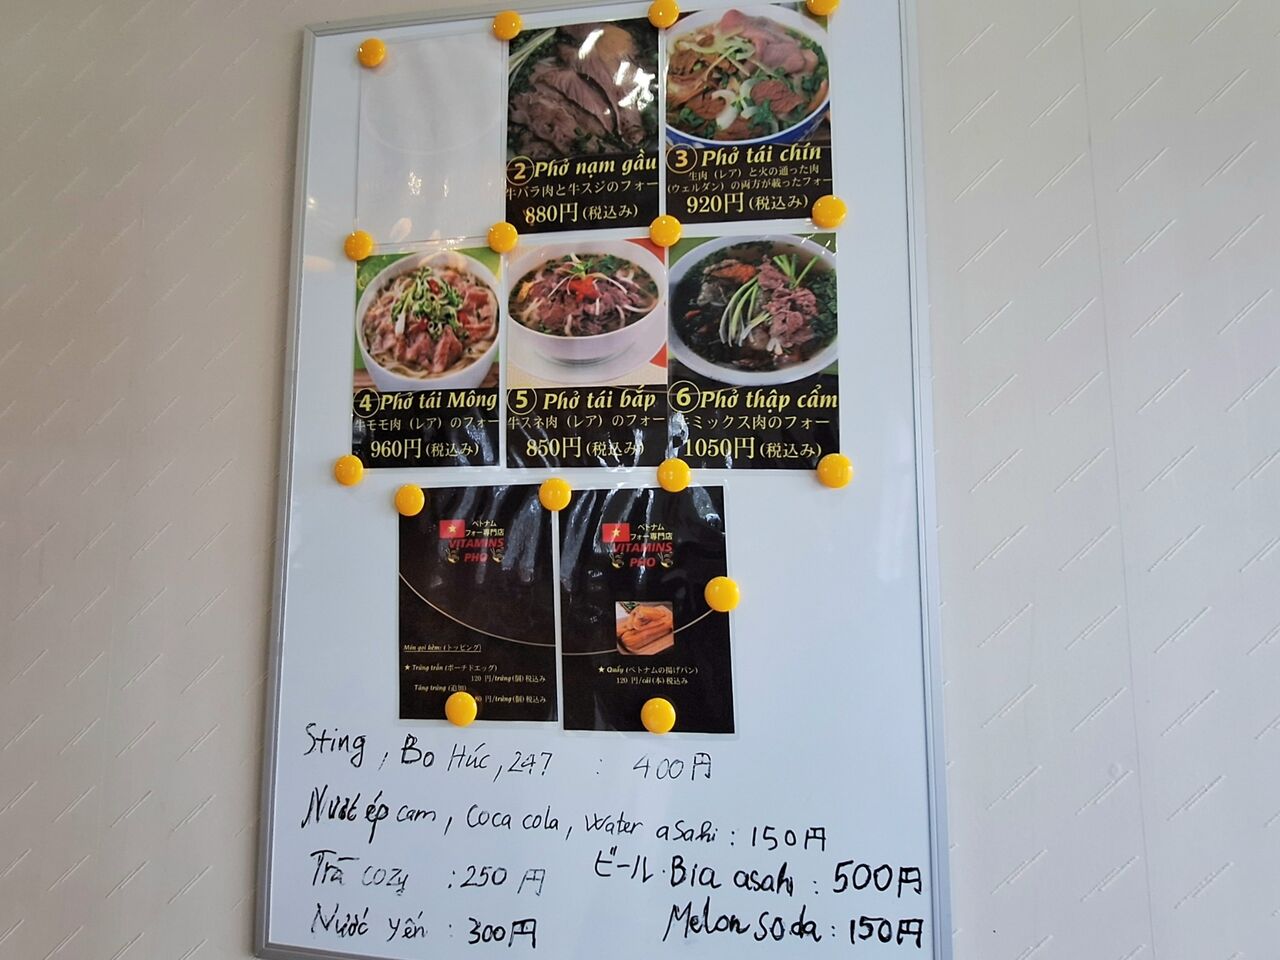 ② Phở nạm gầu
牛バラ肉と牛スジのフォー
880円(税込み)
③ Phở tái chín
生肉(レア)と火の通った肉
(ウェルダン)の両方が載ったフォー
920円(税込み)
④ Phở tái Mông
牛モモ肉(レア)のフォー
960円(税込み)
⑤ Phở tái bắp
牛スネ肉(レア)のフォー
850円(税込み)
⑥ Phở thập cẩm
牛ミックス肉のフォー
1050円(税込み)
ベトナム
フォー専門店
VITAMINS
PHO
Món gọi kèm: (トッピング)
★ Trứng trần (ポーチドエッグ)
120 円/trứng(個)税込み
Tăng trứng (追加)
円/trứng(個)税込み
ベトナム
フォー専門店
VITAMINS
PHO
★ Quẩy (ベトナムの揚げパン)
120 円/cái(本)税込み
Sting, Bo Húc, 247 : 400円
Nướt ép cam, Coca cola, Water asahi : 150円
Trà cozy : 250円
ビール・Bia asahi : 500円
Nước yến : 300円
Melon soda : 150円